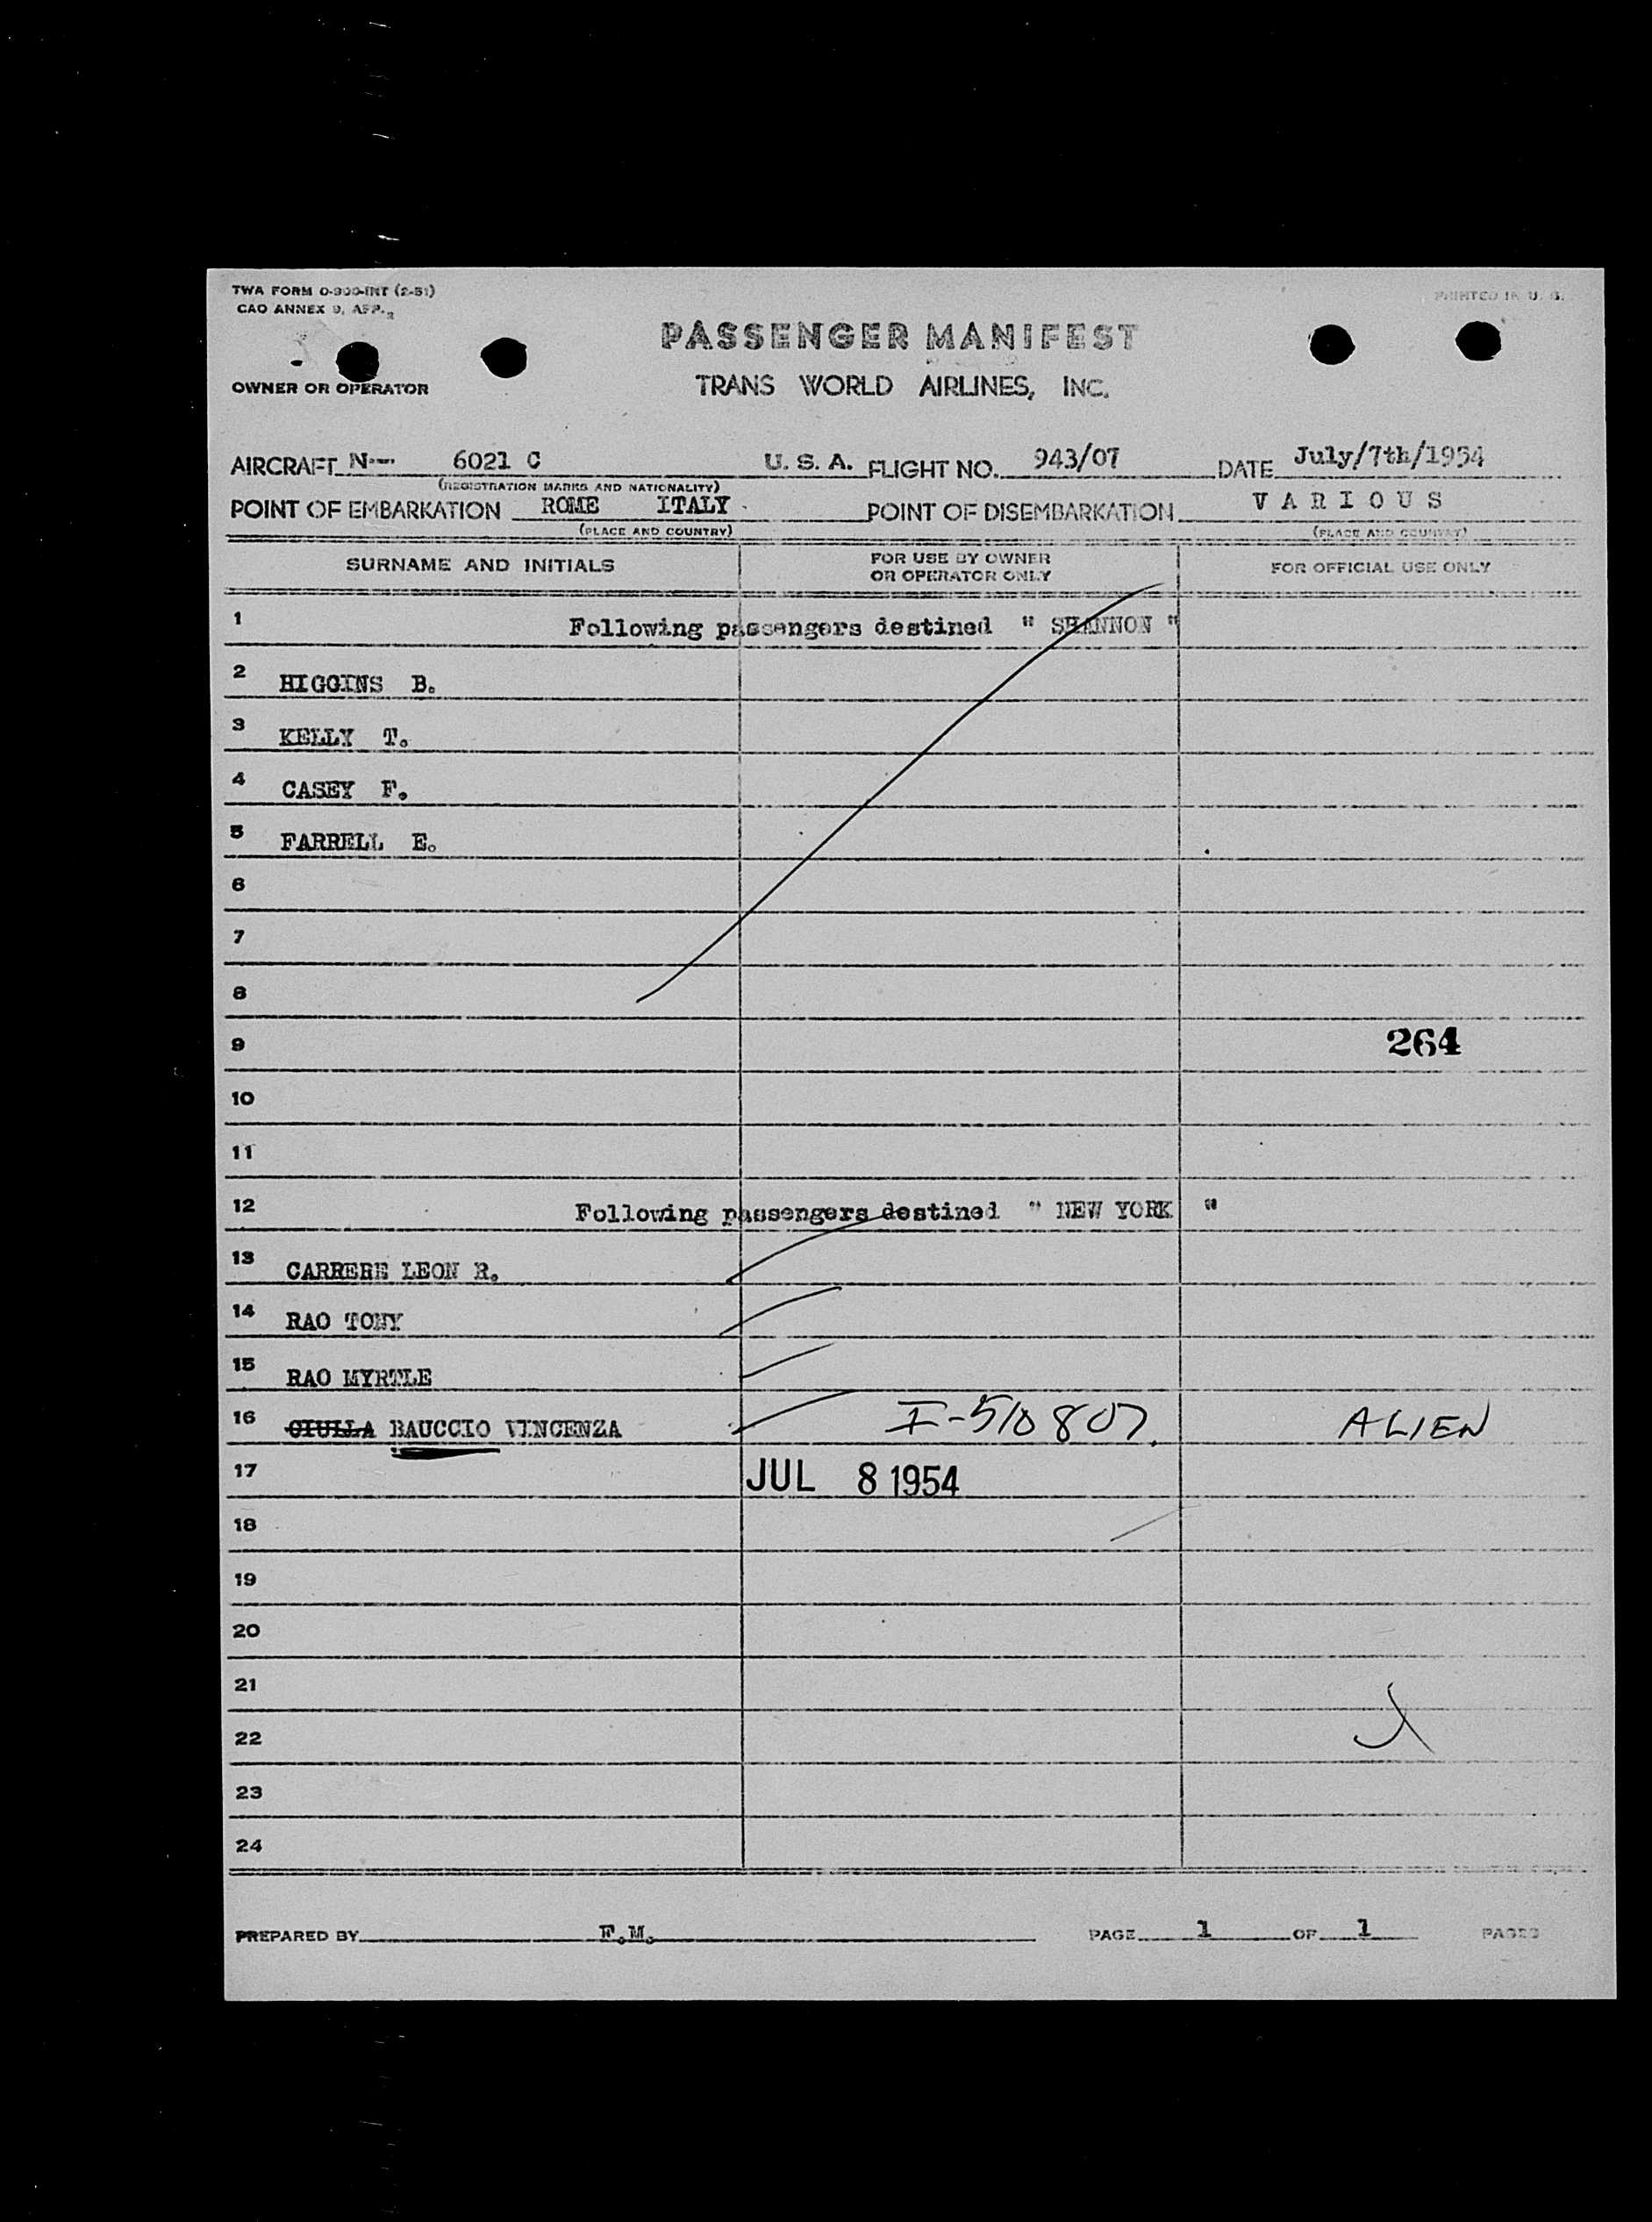 TWA FORM O-900-INT (2-51)
CAO ANNEX 9, APP. 2
PRINTED IN U. S.
PASSENGER MANIFEST
OWNER OR OPERATOR
TRANS WORLD AIRLINES, INC.
AIRCRAFT N-- 6021 C U. S. A. FLIGHT NO. 943/07 DATE July/7th/1954
(REGISTRATION MARKS AND NATIONALITY)
POINT OF EMBARKATION ROME ITALY POINT OF DISEMBARKATION VARIOUS
(PLACE AND COUNTRY) (PLACE AND COUNTRY)
SURNAME AND INITIALS FOR USE BY OWNER OR OPERATOR ONLY FOR OFFICIAL USE ONLY
1 Following passengers destined " SHANNON "
2 HIGGINS B.
3 KELLY T.
4 CASEY F.
5 FARRELL E.
6
7
8
9 264
10
11
12 Following passengers destined " NEW YORK "
13 CARRERE LEON R.
14 RAO TONY
15 RAO MYRTLE
16 GIULLA BAUCCIO VINCENZA I-510807. ALIEN
17 JUL 8 1954
18
19
20
21
22
23
24
PREPARED BY F.M. PAGE 1 OF 1 PAGES